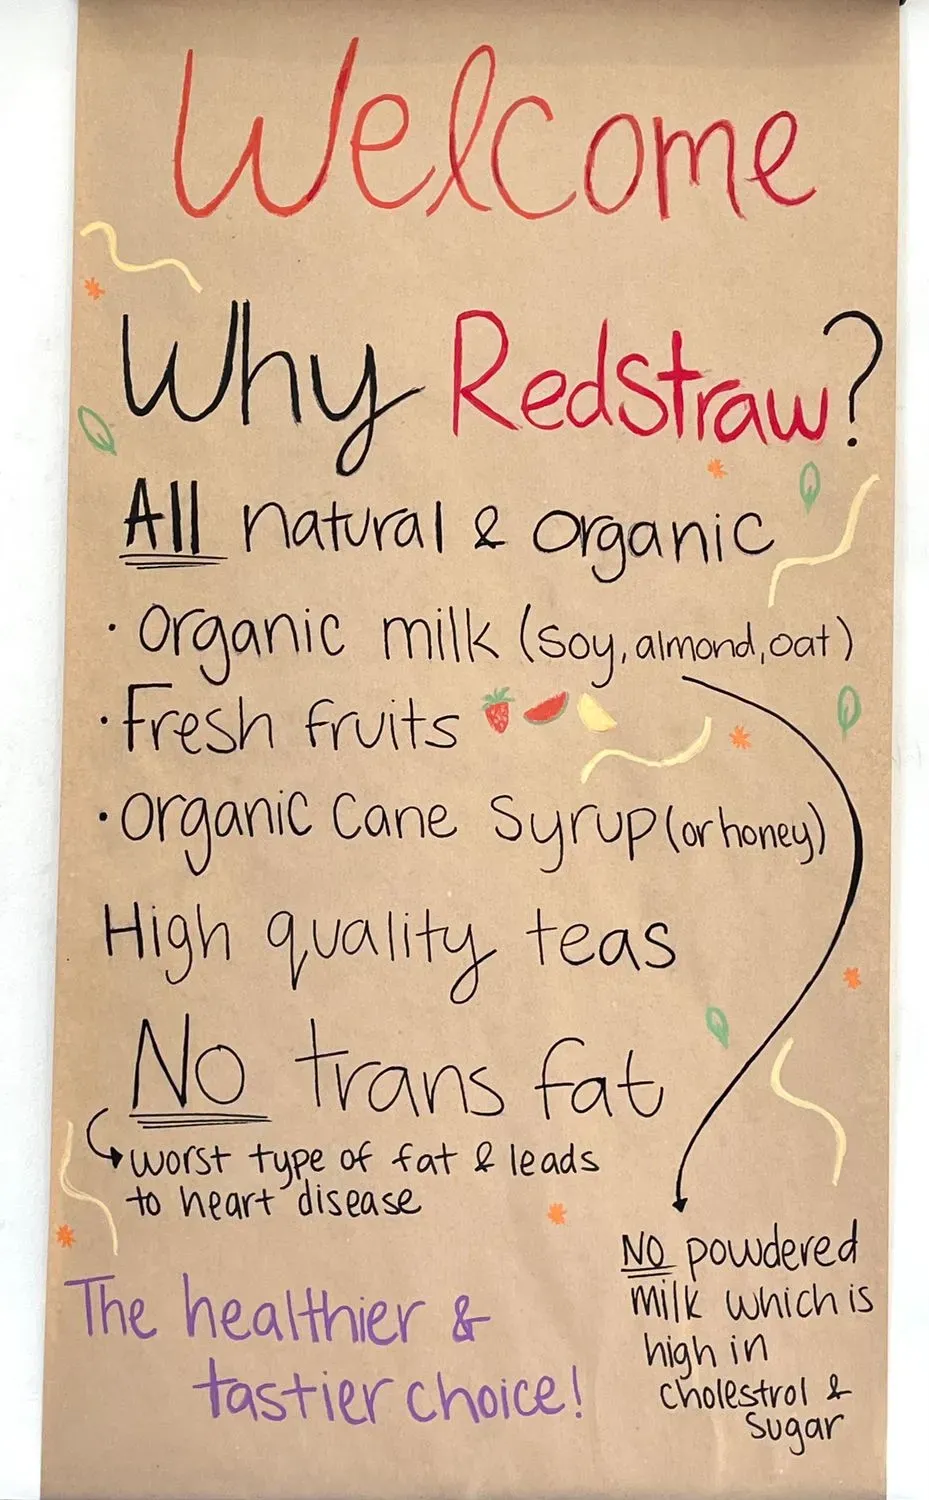 Welcome
Why Redstraw?
All natural & organic
· Organic milk (soy, almond, oat)
· Fresh fruits
· Organic Cane Syrup (or honey)
High quality teas
No trans fat
worst type of fat & leads
to heart disease
The healthier &
tastier choice!
NO powdered
milk which is
high in
cholestrol &
Sugar